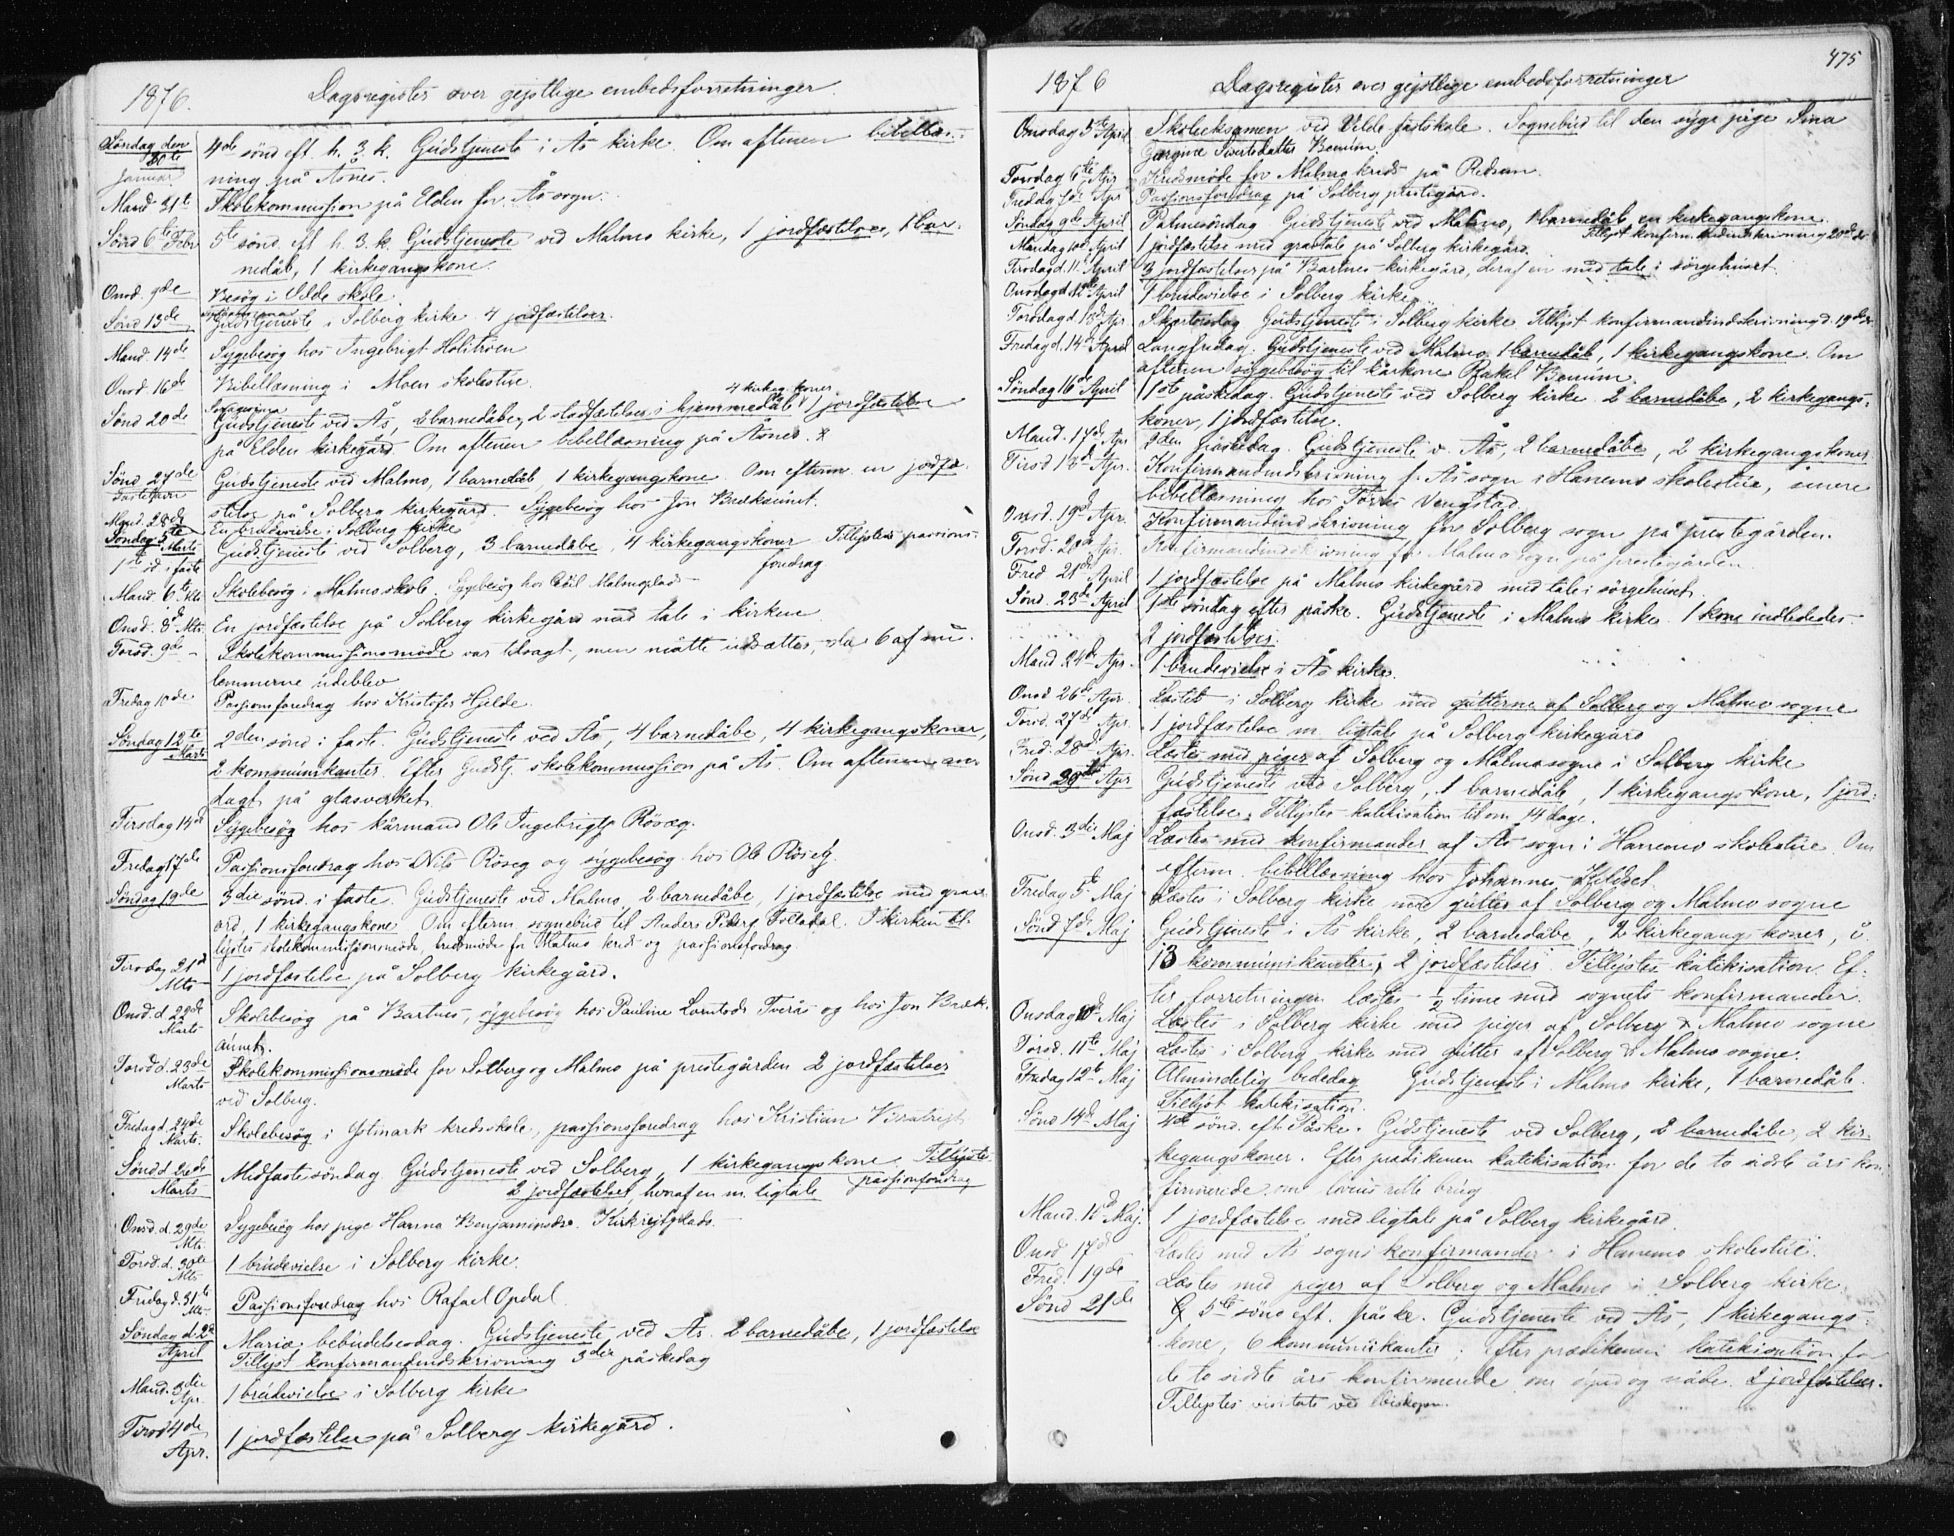 1876.
Dagsregister over gejstlige embedsforretninger.
Søndag den 30te Januar. 4de sønd eft. h. 3. k. Gudstjeneste i Ås kirke. Om aftenen bibellæs-
ning på Åsnes.
Mand 31te Skolekommission på Elden for Ås sogn.
Sønd 6te Febr 5te sønd. eft h. 3. k. Gudstjeneste ved Malmo kirke, 1 jordfæstelse, 1 bar-
nedåb, 1 kirkegangskone.
Onsd. 9de Besøg i Velde skole.
Sønd 13de Septuagesima Gudstjeneste i Solberg kirke 4 jordfæstelser.
Mand. 14de Sygebesøg hos Ingebrigt
Onsd. 16de Bibellæsning i Moen skolestue.
4 kirkeg. koner
Sønd 20de Gudstjeneste ved Ås, 2 barnedåbe, 2 stadfæstelser i hjemmedåb 1 jordfæstelse
på Elden kirkegård. Om aftenen bibellæsning på Åsnes.
Sønd 27de Fastelavn Gudstjeneste ved Malmo, 1 barnedåb, 1 kirkegangskone Om efterm. en jordfæ-
stelse på Solberg kirkegård. Sygebesøg hos Jon
Mand. 28de En brudevielse i Solberg kirke
Søndag 5te Marts 1ste sd. i faste Gudstjeneste ved Solberg, 3 barnedåbe, 4 kirkegangskoner Tillystes passions-
foredrag
Mand. 6te Mts Skolebesøg i Malmo skole. Sygebesøg hos Malmoplads
Onsd. 8de Mts. En jordfæstelse på Solberg kirkegård med tale i kirken
Torsd. 9de Skolekommissionsmøde var tilsagt, men måtte udsættes, da 6 af med-
lemmerne udeblev
Fredag 10de Passionsforedrag hos Kristofer Hjelde.
Søndag 12te Marts 2den sønd i faste. Gudstjeneste ved Ås, 4 barnedåbe, 4 kirkegangskoner,
2 kommunikanter. Efter Gudstj. skolekommission på Ås. Om aftenen an-
dagt på glasværket.
Tirsdag 14de Sygebesøg hos kårmand Ole Ingebrigts Røseg.
Fredag 17de Passionsforedrag hos Nils Røseg og sygebesøg hos Ole Røseg.
Søndag 19de 3die sønd. i faste. Gudstjeneste ved Malmo, 2 barnedåbe, 1 jordfæstelse med grav-
ord, 1 kirkegangskone Om efterm. sognebud til Anders Peders I kirken til-
lystes skolekommissionsmøde, kredsmøde for Malmo kreds og passionsforedrag.
Tirsdag 21de Mts 1 jordfæstelse på Solberg kirkegård.
Onsd. d. 22de Marts Skolebesøg på Bartnes, sygebesøg hos Pauline Tverås og hos Jon Bæk-
aunet.
Torsd d. 23de Marts Skolekommissionsmøde for Solberg og Malmo på prestegården 2 jordfæstelser
ved Solberg.
Fredag d. 24de Marts. Skolebesøg i Østmark kredsskole, passionsforedrag hos Kristian
Sønd d. 26de Marts Midfastesøndag Gudstjeneste ved Solberg, 1 kirkegangskone. Tillystes
2 jordfæstelser, hvoraf en m. ligtale passionsforedrag
Onsd. d. 29de Mts. Sygebesøg hos pige Hanna Benjaminsdr.
Torsd. d. 30te Mts 1 brudevielse i Solberg kirke.
Fredag d. 31te Mts. Passionsforedrag hos Rafael Opdal.
Søndag d. 2d April Mariæ bebudelsesdag. Gudstjeneste ved Ås. 2 barnedåbe, 1 jordfæstelse
Tillyst konfirmandindskrivning 3die påskedag
Mand. 3die Apr. 1 brudevielse i Solberg kirke
Tirsd 4de Apr. 1 jordfæstelse på Solberg kirkegård.
475
1876
Dagsregister over gejstlige embedsforretninger
Onsdag 5te April Skoleeksamen ved Velde fastskole. Sognebud til den syge pige Sina
Jørgine Sivertsdatter Benum.
Torsdag 6te Apr Kredsmøde for Malmo kreds på
Fredag 7de Apr Passionsforedrag på Solberg prestegård.
Søndag 9de April Palmesøndag Gudstjeneste ved Malmo, 1 barnedåb, en kirkegangskone.
Tillyst konfirmandindskrivning 20de ds
Mandag 10de April 1 jordfæstelse med gravtale på Solberg kirkegård.
Tirsdag d. 11te April 3 jordfæstelser på Bartnes kirkegård, deraf en med tale i sørgehuset.
Onsdag d. 12te April 1 brudevielse i Solberg kirke
Torsdag d. 13de Apr. Skjærtorsdag Gudstjeneste i Solberg kirke Tillyst konfirmandindskrivning d. 19de ds.
Fredag d. 14de April Langfredag. Gudstjeneste ved Malmo. 1 barnedåb, 1 kirkegangskone. Om
aftenen sygebesøg til kårkone Rakel Benum.
Søndag 16de April 1ste påskedag. Gudstjeneste ved Solberg kirke. 2 barnedåbe, 2 kirkegangs-
koner, 1 jordfæstelse.
Mand. 17de Apr 2den påskedag. Gudstjeneste v. Ås, 2 barnedåbe, 2 kirkegangskoner.
Tirsd 18de Apr. Konfirmandindskrivning f. Ås sogn i Hanemo skolestue, senere
bibellæsning hos Vengstad.
Onsd. 19de Apr. Konfirmandindskrivning for Solberg sogn på prestegården.
Torsd. 20de Apr. Konfirmandindskrivning for Malmo sogn på prestegården.
Fred 21de April 1 jordfæstelse på Malmo kirkegård med tale i sørgehuset.
Sønd. 23de April 1ste søndag efter påske. Gudstjeneste i Malmo kirke. 1 kone indlededes
2 jordfæstelser.
Mand 24de Apr. 1 brudevielse i Ås kirke.
Onsd 26de Apr. Læstes i Solberg kirke med gutterne af Solberg og Malmo sogne
Torsd. 27de Apr. 1 jordfæstelse m. ligtale på Solberg kirkegård
Fred. 28de Apr. Læstes med piger af Solberg og Malmo sogne i Solberg kirke
Sønd 30te Apr. Gudstjeneste ved Solberg, 1 barnedåb, 1 kirkegangskone, 1 jord-
fæstelse. Tillystes katekisation til om 14 dage.
Onsd. 3die Maj Læstes med konfirmander af Ås sogn i Hanemo skolestue. Om
efterm. bibellæsning hos Johannes
Fredag 5te Maj Læstes i Solberg kirke med gutter af Solberg og Malmo sogne
Sønd 7de Maj Gudstjeneste i Ås kirke, 2 barnedåbe, 2 kirkegangskoner,
13 kommunikanter, 2 jordfæstelser. Tillystes katekisation. Ef-
ter forretningen læstes ½ time med sognets konfirmander.
Onsdag 10de Maj Læstes i Solberg kirke med piger af Solberg & Malmo sogne
Torsd. 11te Maj Læstes i Solberg kirke med gutter af Solberg & Malmo sogne.
Fredag 12te Maj Almindelig bededag Gudstjeneste i Malmo kirke, 1 barnedåb.
Tillyst katekisation.
Sønd 14de Maj 4de sønd. eft Påske. Gudstjeneste ved Solberg, 2 barnedåbe, 2 kir-
kegangskoner. Efter prædikenen katekisation for de to sidste års kon-
firmerede om lovens rette brug
Mand. 15de Maj. 1 jordfæstelse med ligtale på Solberg kirkegård.
Onsd 17de Læstes med Ås sogns konfirmander i Hanemo skolestue.
Fred. 19de Læstes med piger af Solberg og Malmo i Solberg kirke.
Sønd 21de 5te sønd eft. påske. Gudstjeneste ved Ås, 1 kirkegangs-
kone, 6 kommunikanter; Efter prædikenen katekisation for
de to sidste års konfirmerede om synd og nåde. 2 jordfæstelser.
Tillystes visitats ved Biskopen.